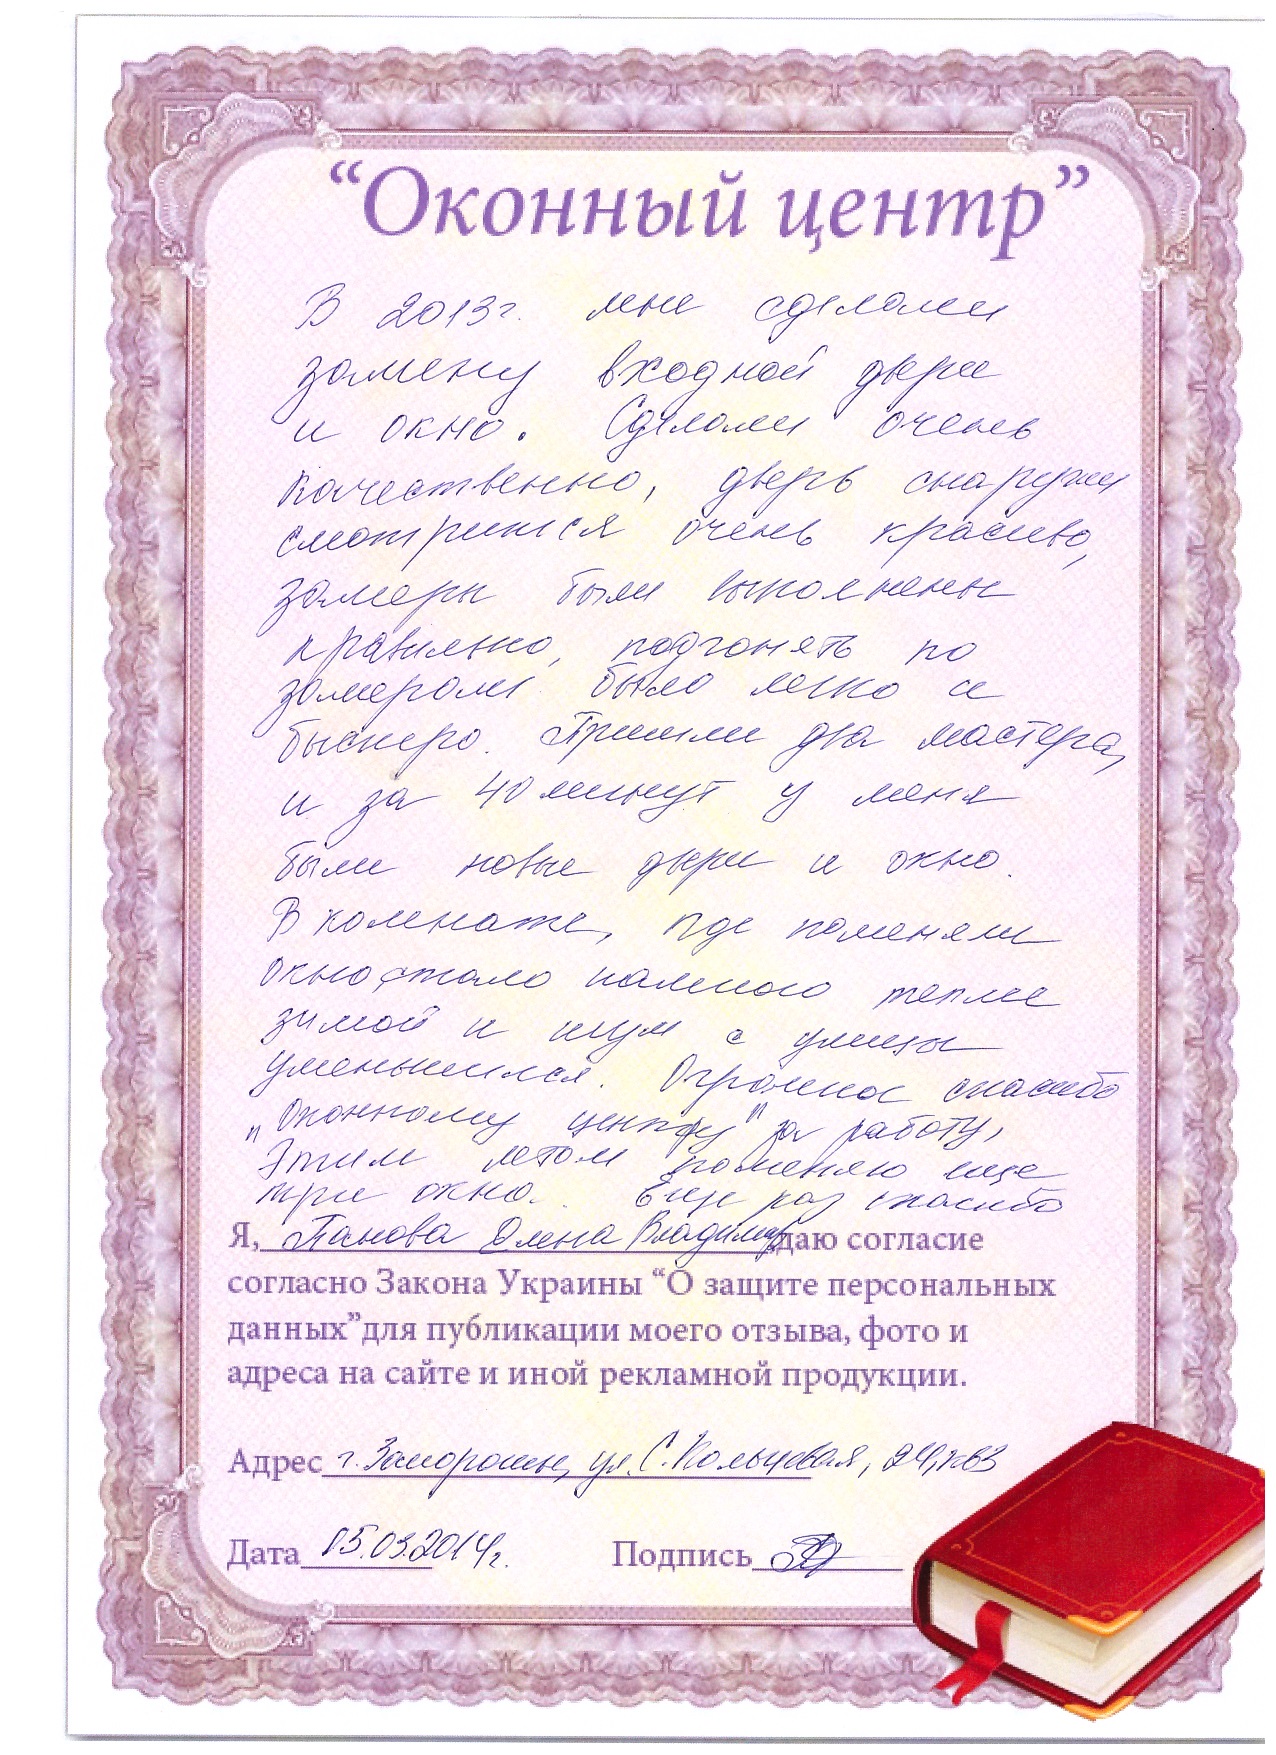 “Оконный центр”
В 2013г. мне сделали
замену входной двери
и окно. Сделали очень
качественно, дверь снаружи
смотрится очень красиво,
замеры были выполнены
правильно, подгонять по
замерам было легко и
быстро. Пришли два мастера,
и за 40 минут у меня
были новые двери и окно.
В комнате, где поменяли
окно стало намного теплее
зимой и шум с улицы
уменьшился. Огромное спасибо
„Оконному центру" за работу,
Этим летом поменяю еще
три окна. Еще раз спасибо
Я, Панова Елена Владимир даю согласие
согласно Закона Украины “О защите персональных
данных”для публикации моего отзыва, фото и
адреса на сайте и иной рекламной продукции.
Адрес г. Запорожье, ул. С. Кольцевая, 24, кв3
Дата 05.03.2014г. Подпись